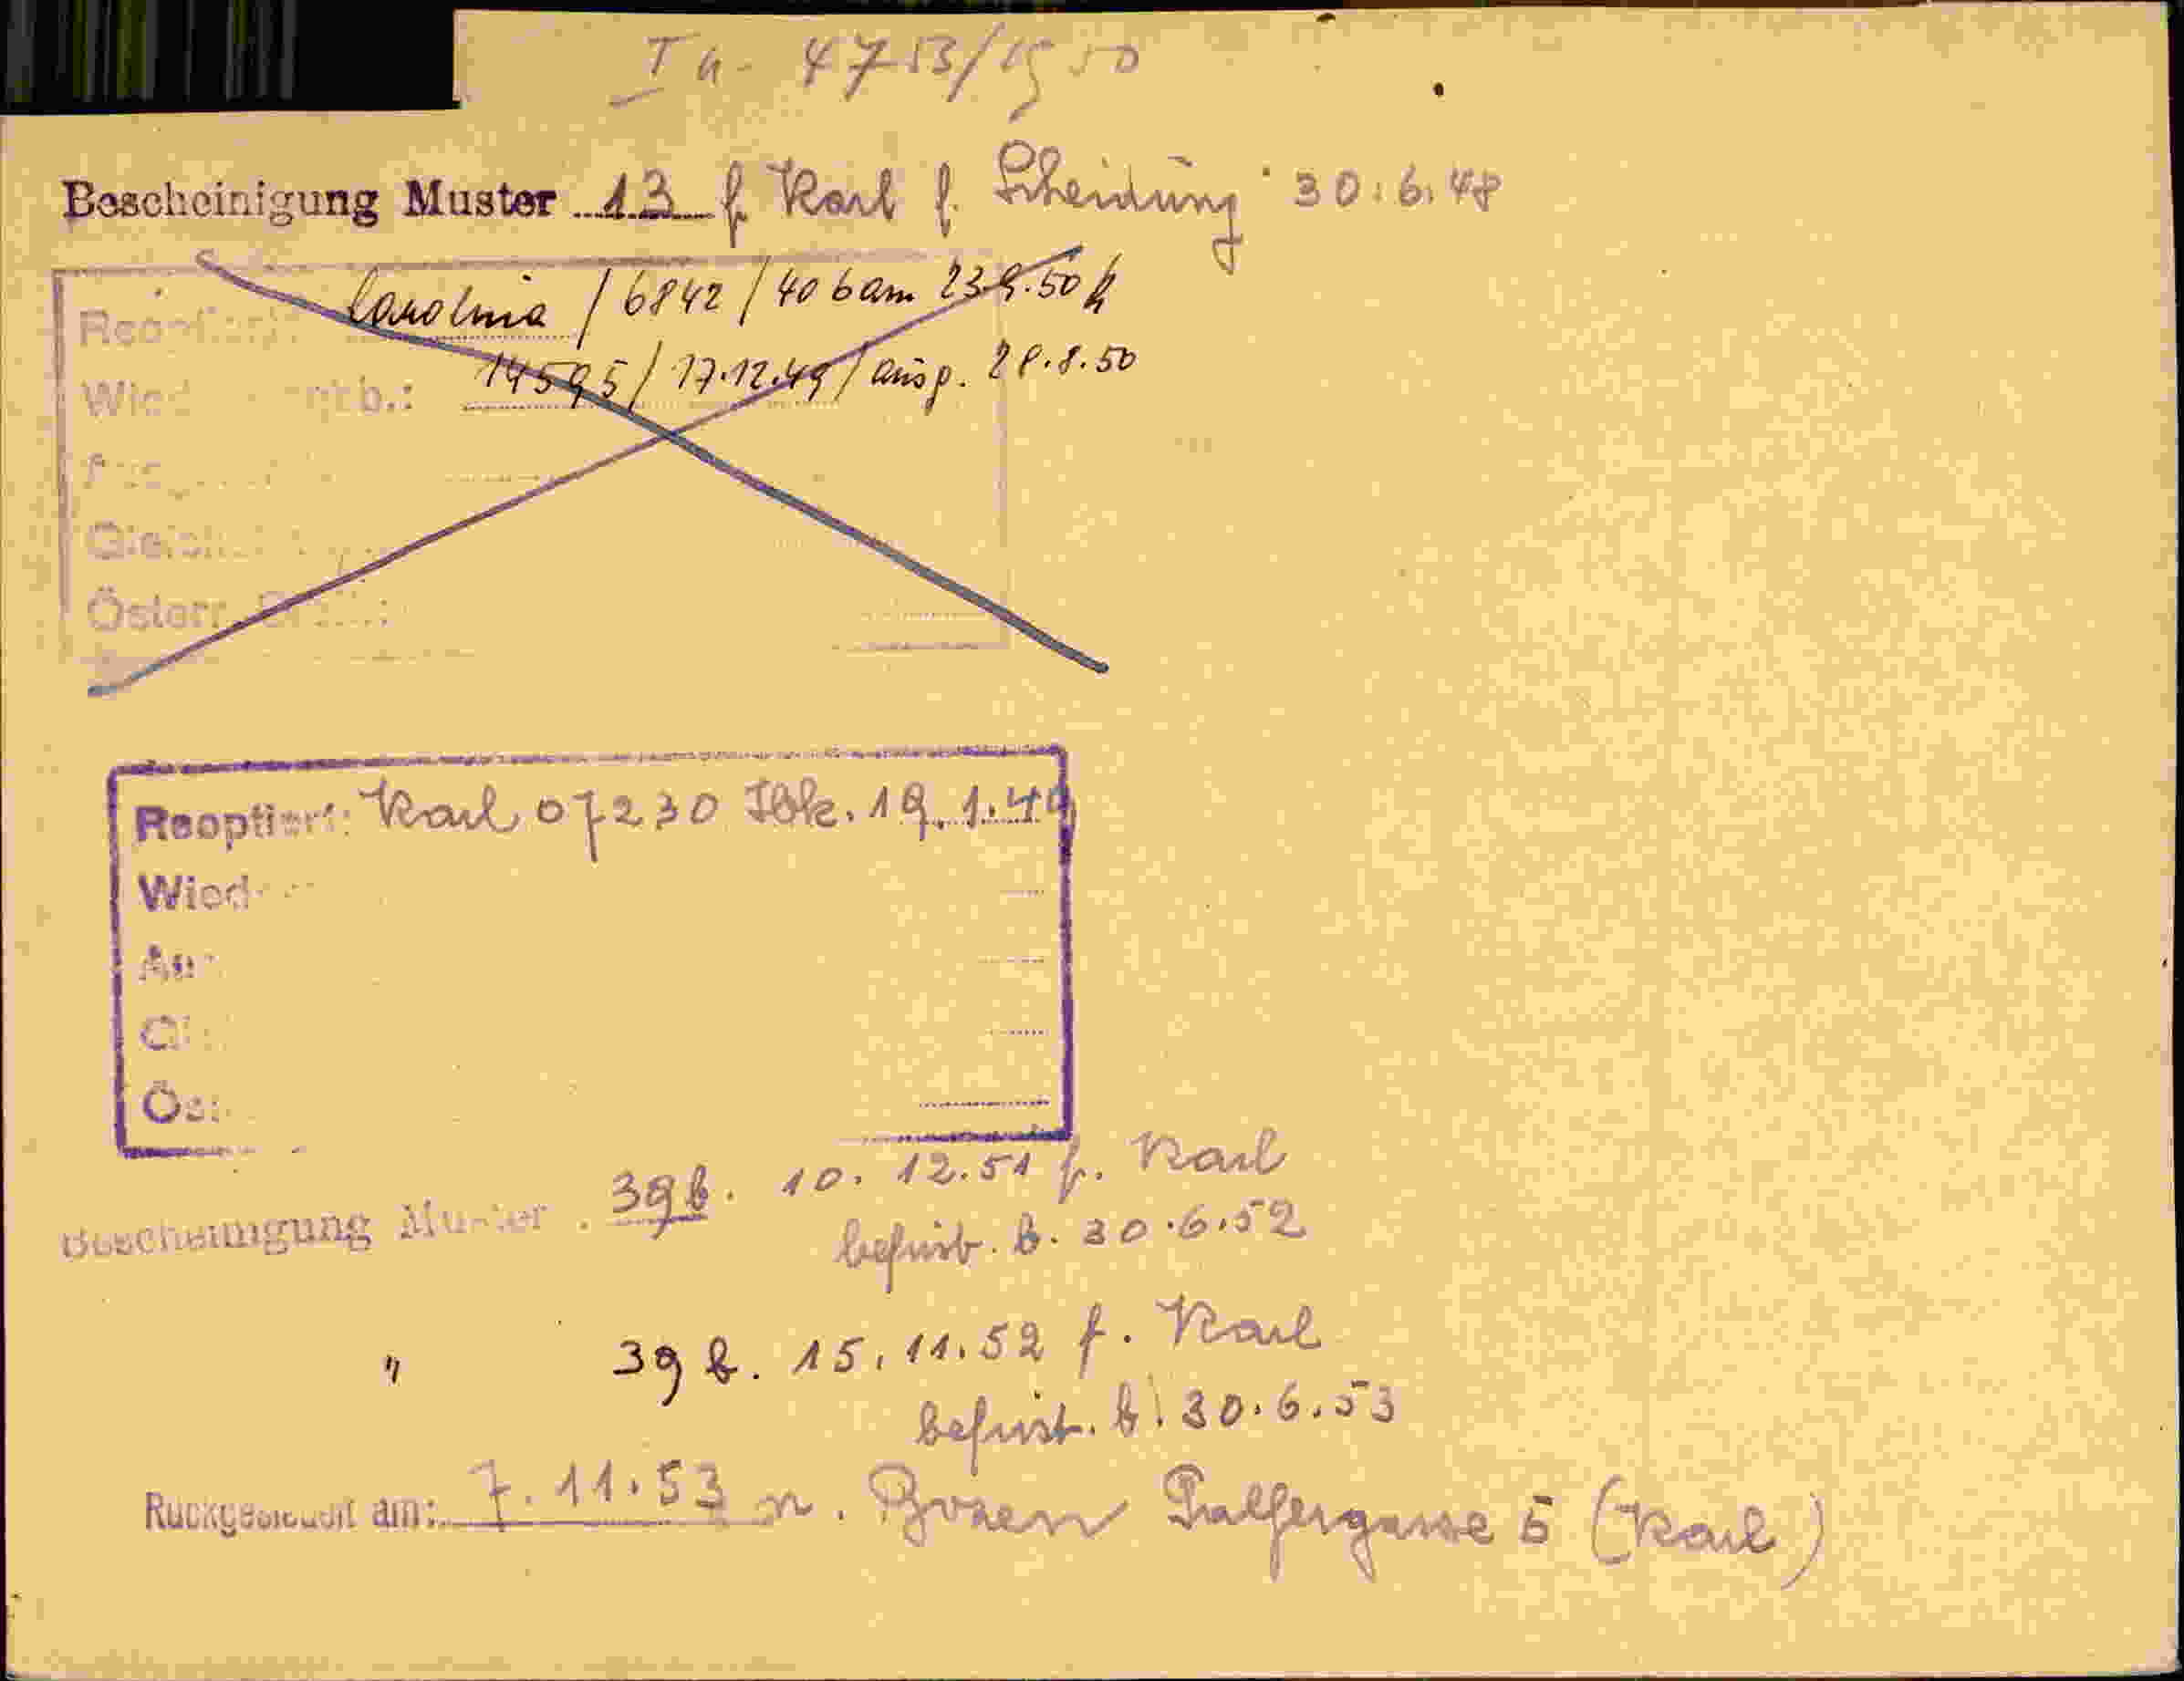 I a - 4753/1950
Bescheinigung Muster 13 f. Karl f. Scheidung 30.6.48
Carolina / 6842 / 40 b am 23.9.50
14595 / 17.12.49 / ausg. 28.8.50
Österr.
Reoptiert: Karl 07230 Ibk. 19.1.49
Bescheinigung Muster 39 b. 10.12.51 f. Karl
befrist. b. 30.6.52
" 39 b. 15.11.52 f. Karl
befrist. b. 30.6.53
Rückgesiedelt am: 7.11.53 n. Bozen (Karl)